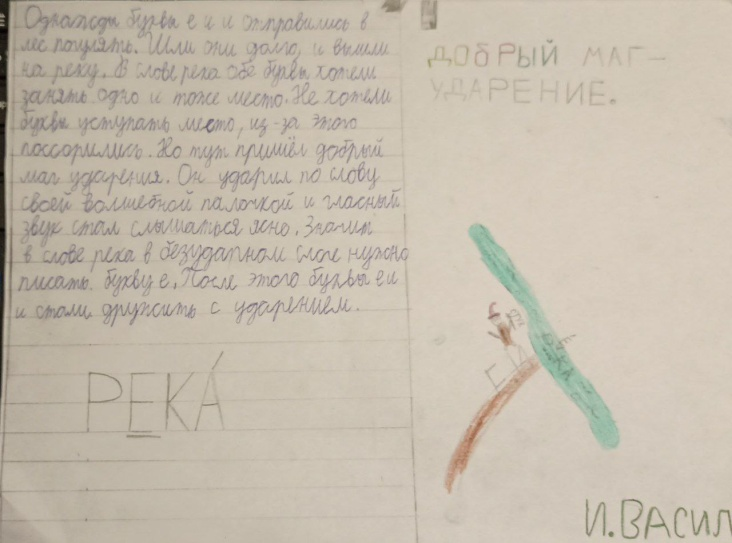 Однажды буквы е и и отправились в
лес погулять. Шли они долго, и вышли
на реку. В слове река обе буквы хотели
занять одно и тоже место. Не хотели
буквы уступать место, из-за этого
поссорились. Но тут пришёл добрый
маг ударения. Он ударил по слову
своей волшебной палочкой и гласный
звук стал слышаться ясно. Значит
в слове река в безударном слоге нужно
писать букву е. После этого буквы е и
и стали дружить с ударением.
РЕКА́
ДОБРЫЙ МАГ-
УДАРЕНИЕ.
И. ВАСИЛ